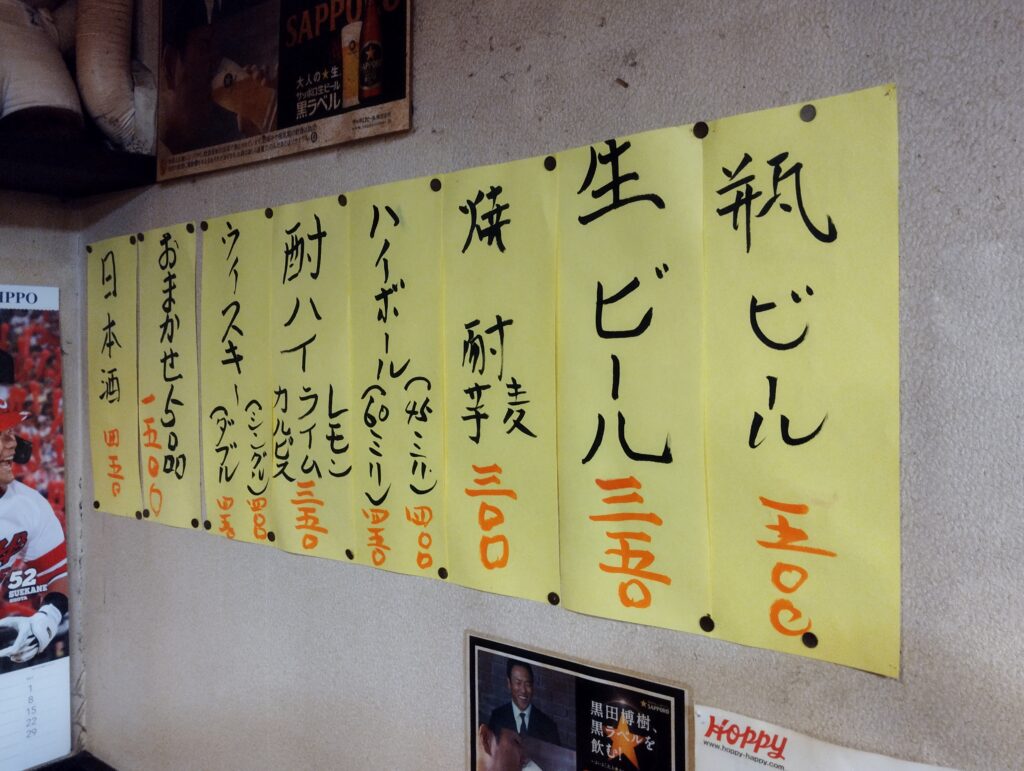 SAPPORO
大人の★生
サッポロ生ビール
黒ラベル
瓶ビール 五〇〇
生ビール 三五〇
焼酎 麦
芋 三〇〇
ハイボール (45ミリ) 四〇〇
(60ミリ) 四五〇
酎ハイ レモン
ライム
カルピス 三五〇
ウィスキー (シングル) 四〇〇
(ダブル) 四五〇
おまかせ 〜5000
一五〇〇
日本酒 四五〇
IPPO
52
SUEKANE
SHOTA
1
8
15
22
29
黒田博樹、
黒ラベルを
飲む!
SAPPORO
HOPPY
www.hoppy-happy.com